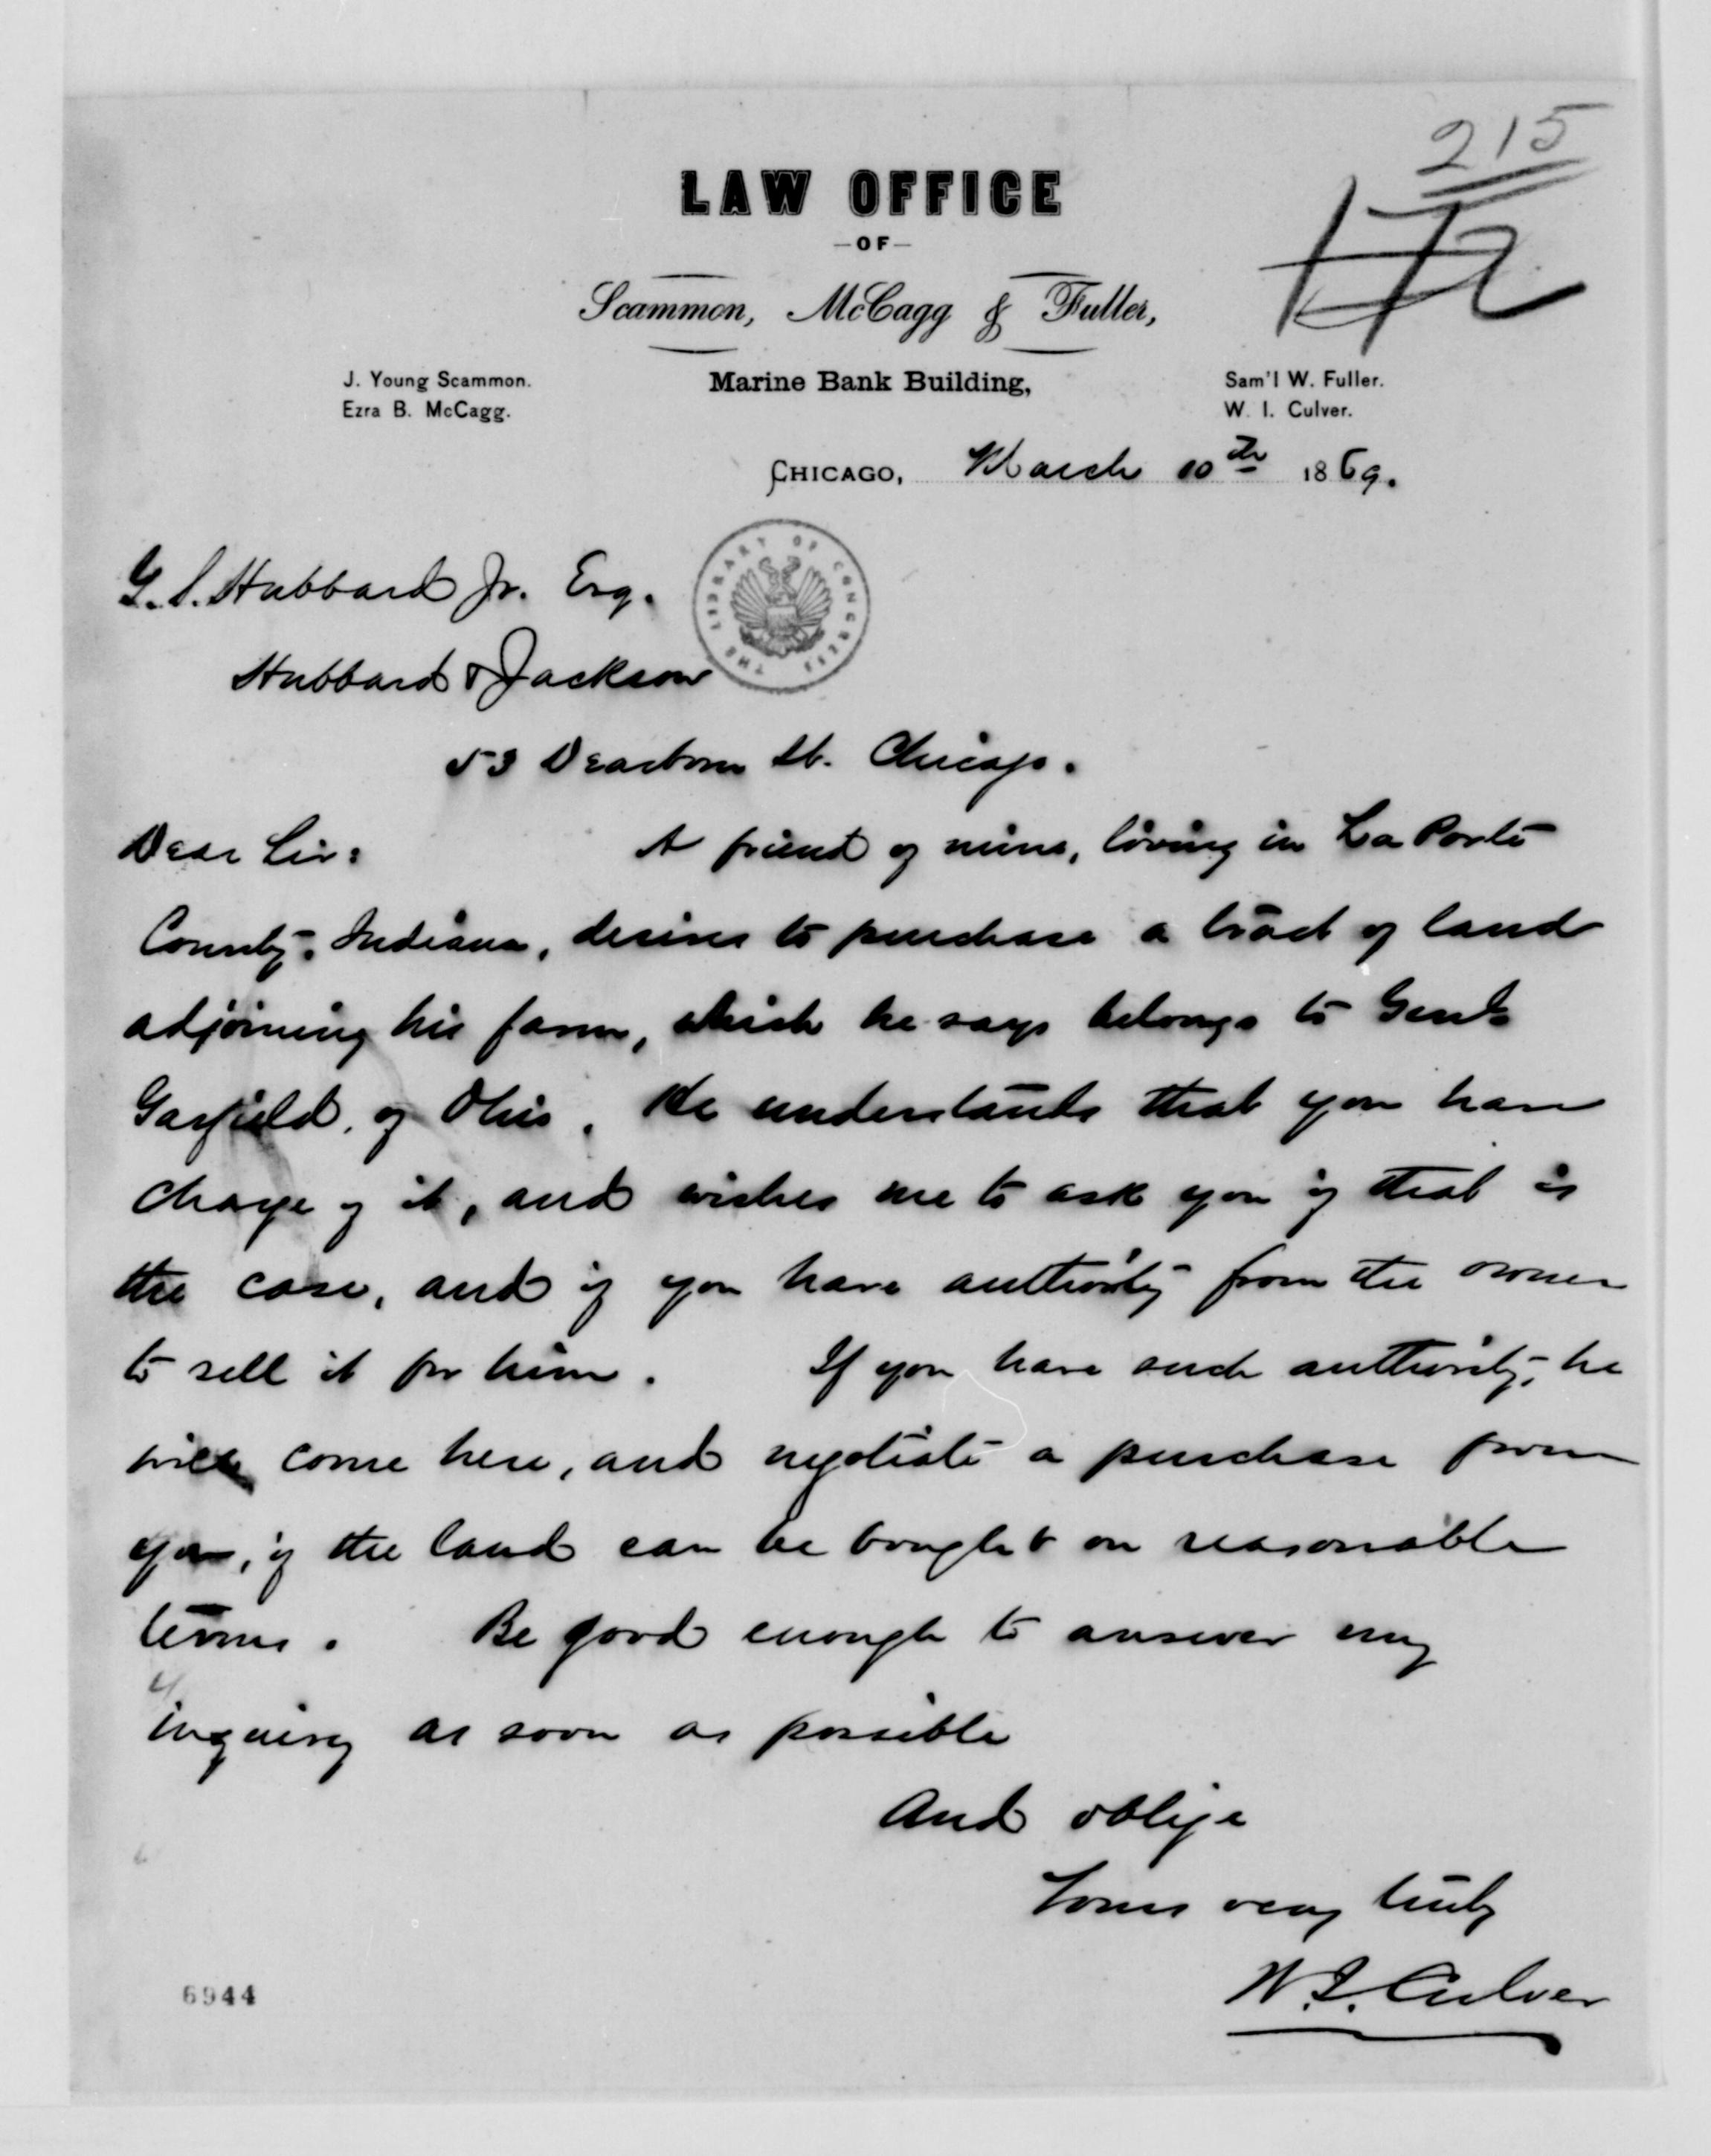 215
LAW OFFICE
—OF—
Scammon, McCagg & Fuller,
J. Young Scammon. Marine Bank Building, Sam'l W. Fuller.
Ezra B. McCagg. W. I. Culver.
CHICAGO, March 10th 1869.
G. S. Hubbard Jr. Esq.
THE LIBRARY OF CONGRESS
Hubbard & Jackson
53 Dearborn St. Chicago.
Dear Sir: A friend of mine, living in La Porte
County, Indiana, desires to purchase a tract of land
adjoining his farm, which he says belongs to Genl.
Garfield, of Ohio. He understands that you have
charge of it, and wishes me to ask you if that is
the case, and if you have authority from the owner
to sell it for him. If you have such authority, he
will come here, and negotiate a purchase from
you, if the land can be bought on reasonable
terms. Be good enough to answer my
inquiry as soon as possible
And oblige
Yours very truly
W. I. Culver
6944